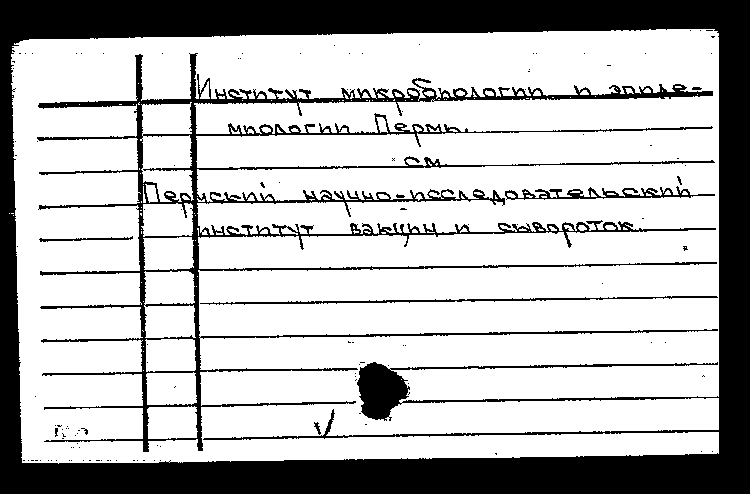 Институт микробиологии и эпиде-
миологии Пермь.
см.
Пермский научно-исследовательский
институт вакцин и сывороток.